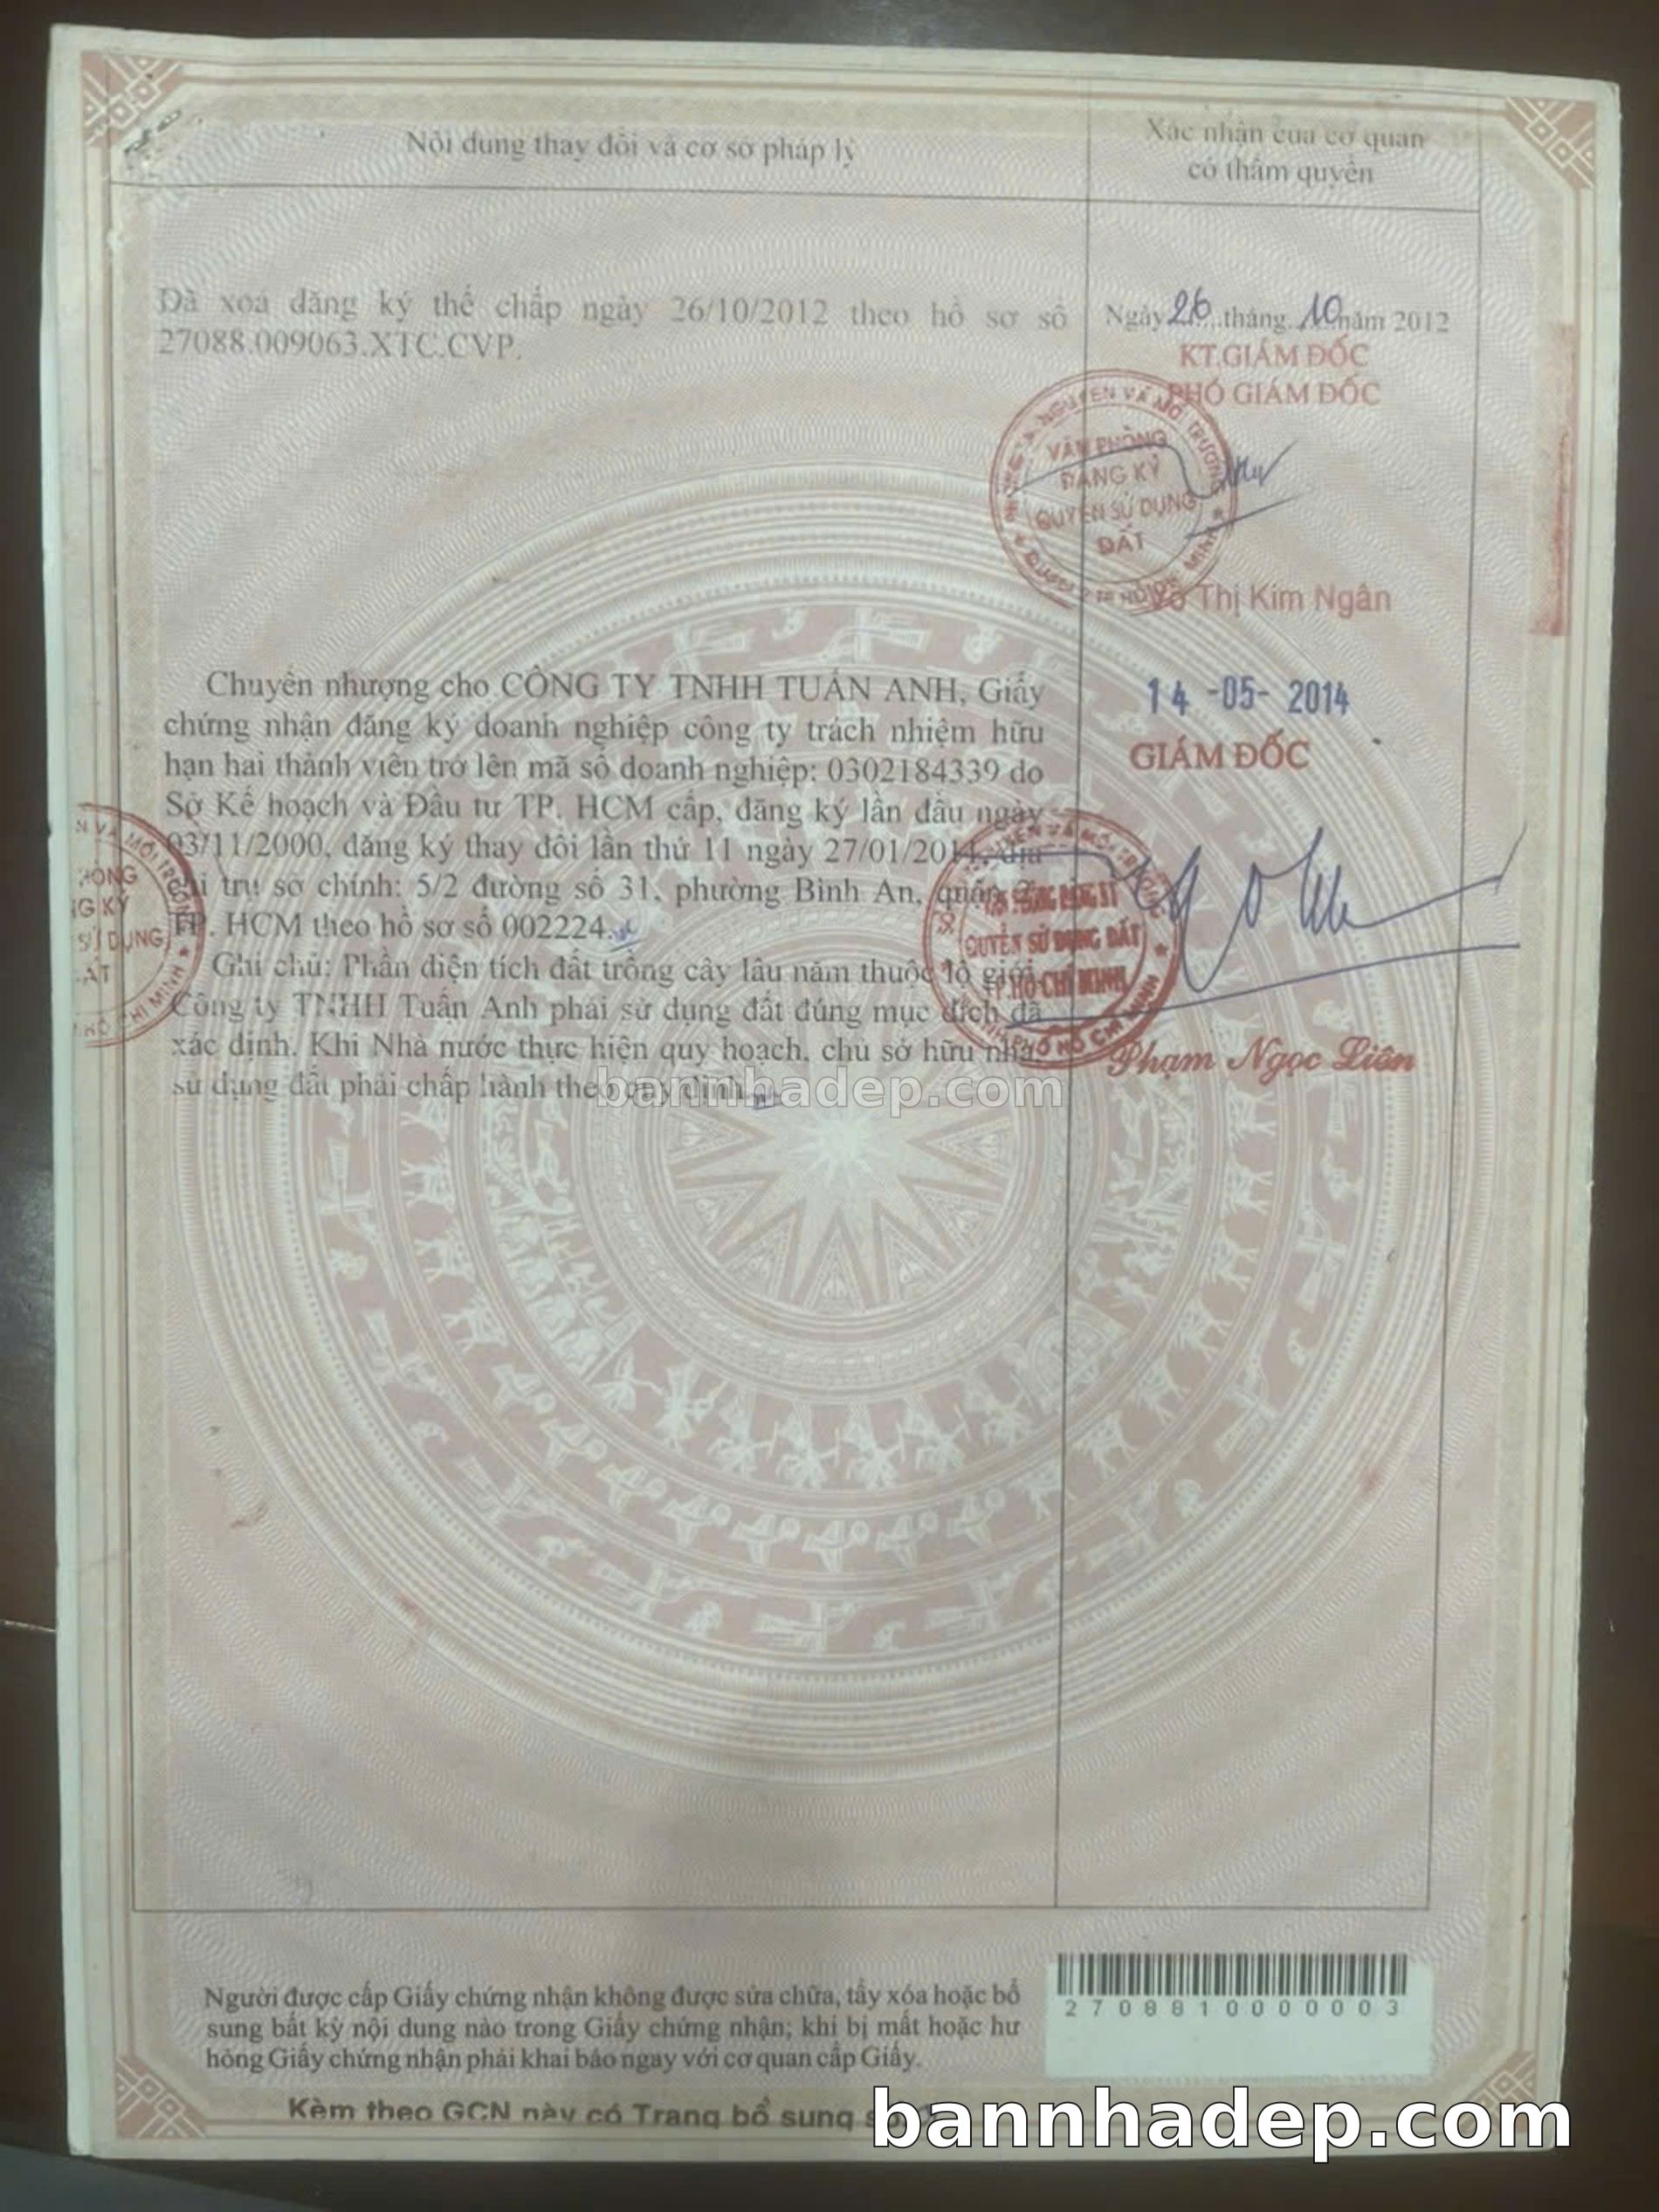 Nội dung thay đổi và cơ sở pháp lý
Xác nhận của cơ quan
có thẩm quyền
Đã xoá đăng ký thế chấp ngày 26/10/2012 theo hồ sơ số
27088.009063.XTC.CVP.
Ngày 26 tháng 10 năm 2012
KT.GIÁM ĐỐC
PHÓ GIÁM ĐỐC
VĂN PHÒNG
ĐĂNG KÝ
QUYỀN SỬ DỤNG
ĐẤT
Võ Thị Kim Ngân
Chuyển nhượng cho CÔNG TY TNHH TUẤN ANH, Giấy
chứng nhận đăng ký doanh nghiệp công ty trách nhiệm hữu
hạn hai thành viên trở lên mã số doanh nghiệp: 0302184339 do
Sở Kế hoạch và Đầu tư TP. HCM cấp, đăng ký lần đầu ngày
03/11/2000, đăng ký thay đổi lần thứ 11 ngày 27/01/2014, địa
chỉ trụ sở chính: 5/2 đường số 31, phường Bình An, quận
TP. HCM theo hồ sơ số 002224.
Ghi chú: Phần diện tích đất trồng cây lâu năm thuộc lộ giới
Công ty TNHH Tuấn Anh phải sử dụng đất đúng mục đích đã
xác định. Khi Nhà nước thực hiện quy hoạch, chủ sở hữu nhà,
sử dụng đất phải chấp hành theo quy định.
14 -05- 2014
GIÁM ĐỐC
QUYỀN SỬ DỤNG ĐẤT
TP.HỒ CHÍ MINH
Phạm Ngọc Liên
bannhadep.com
Người được cấp Giấy chứng nhận không được sửa chữa, tẩy xóa hoặc bổ
sung bất kỳ nội dung nào trong Giấy chứng nhận; khi bị mất hoặc hư
hỏng Giấy chứng nhận phải khai báo ngay với cơ quan cấp Giấy.
2708810000003
Kèm theo GCN này có Trang bổ sung
bannhadep.com